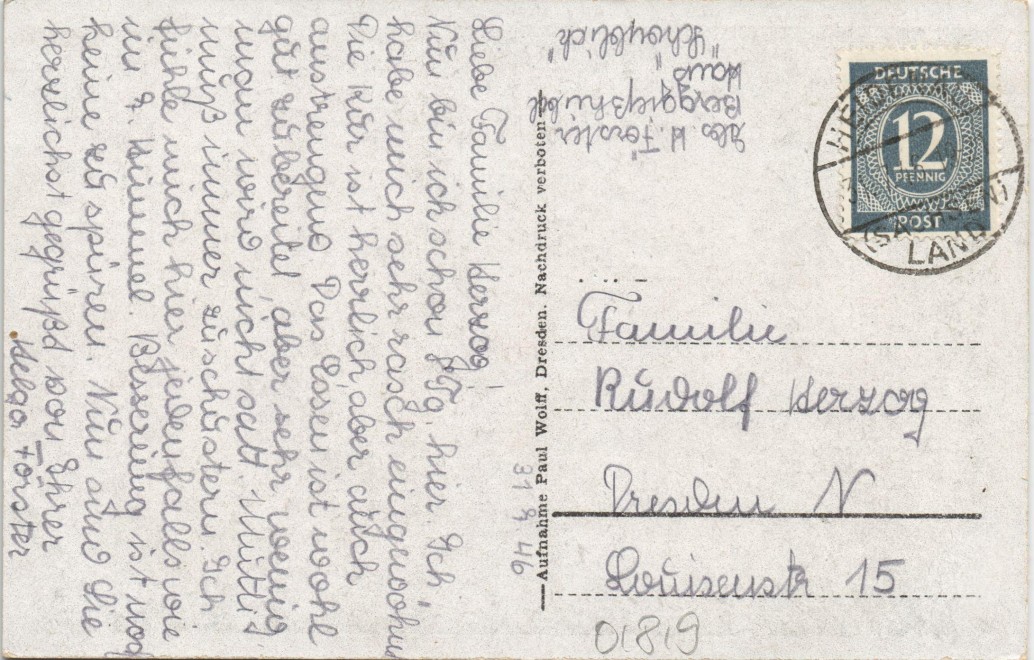 Liebe Familie Herzog!
Nun bin ich schon 8 Tg. hier. Ich
habe mich sehr rasch eingewöhnt.
Die Kur ist herrlich, aber auch
anstrengend. Das Essen ist wohl
gut zubereitet, aber sehr wenig
man wird nicht satt. Mutti
muß immer zuschustern. Ich
fühle mich hier jedenfalls wie
im 7. Himmel. Besserung ist noch
keine zu spüren. Nun sind Sie
herzlichst gegrüßt von Ihrer
Helga Förster
Abs. H. Förster
Berggießhübel
Haus
"Schönblick"
31 46
Aufnahme Paul Wolff, Dresden. Nachdruck verboten
DEUTSCHE
12
PFENNIG
POST
LAND
Familie
Rudolf Herzog
Dresden N
Louisenstr 15
01819